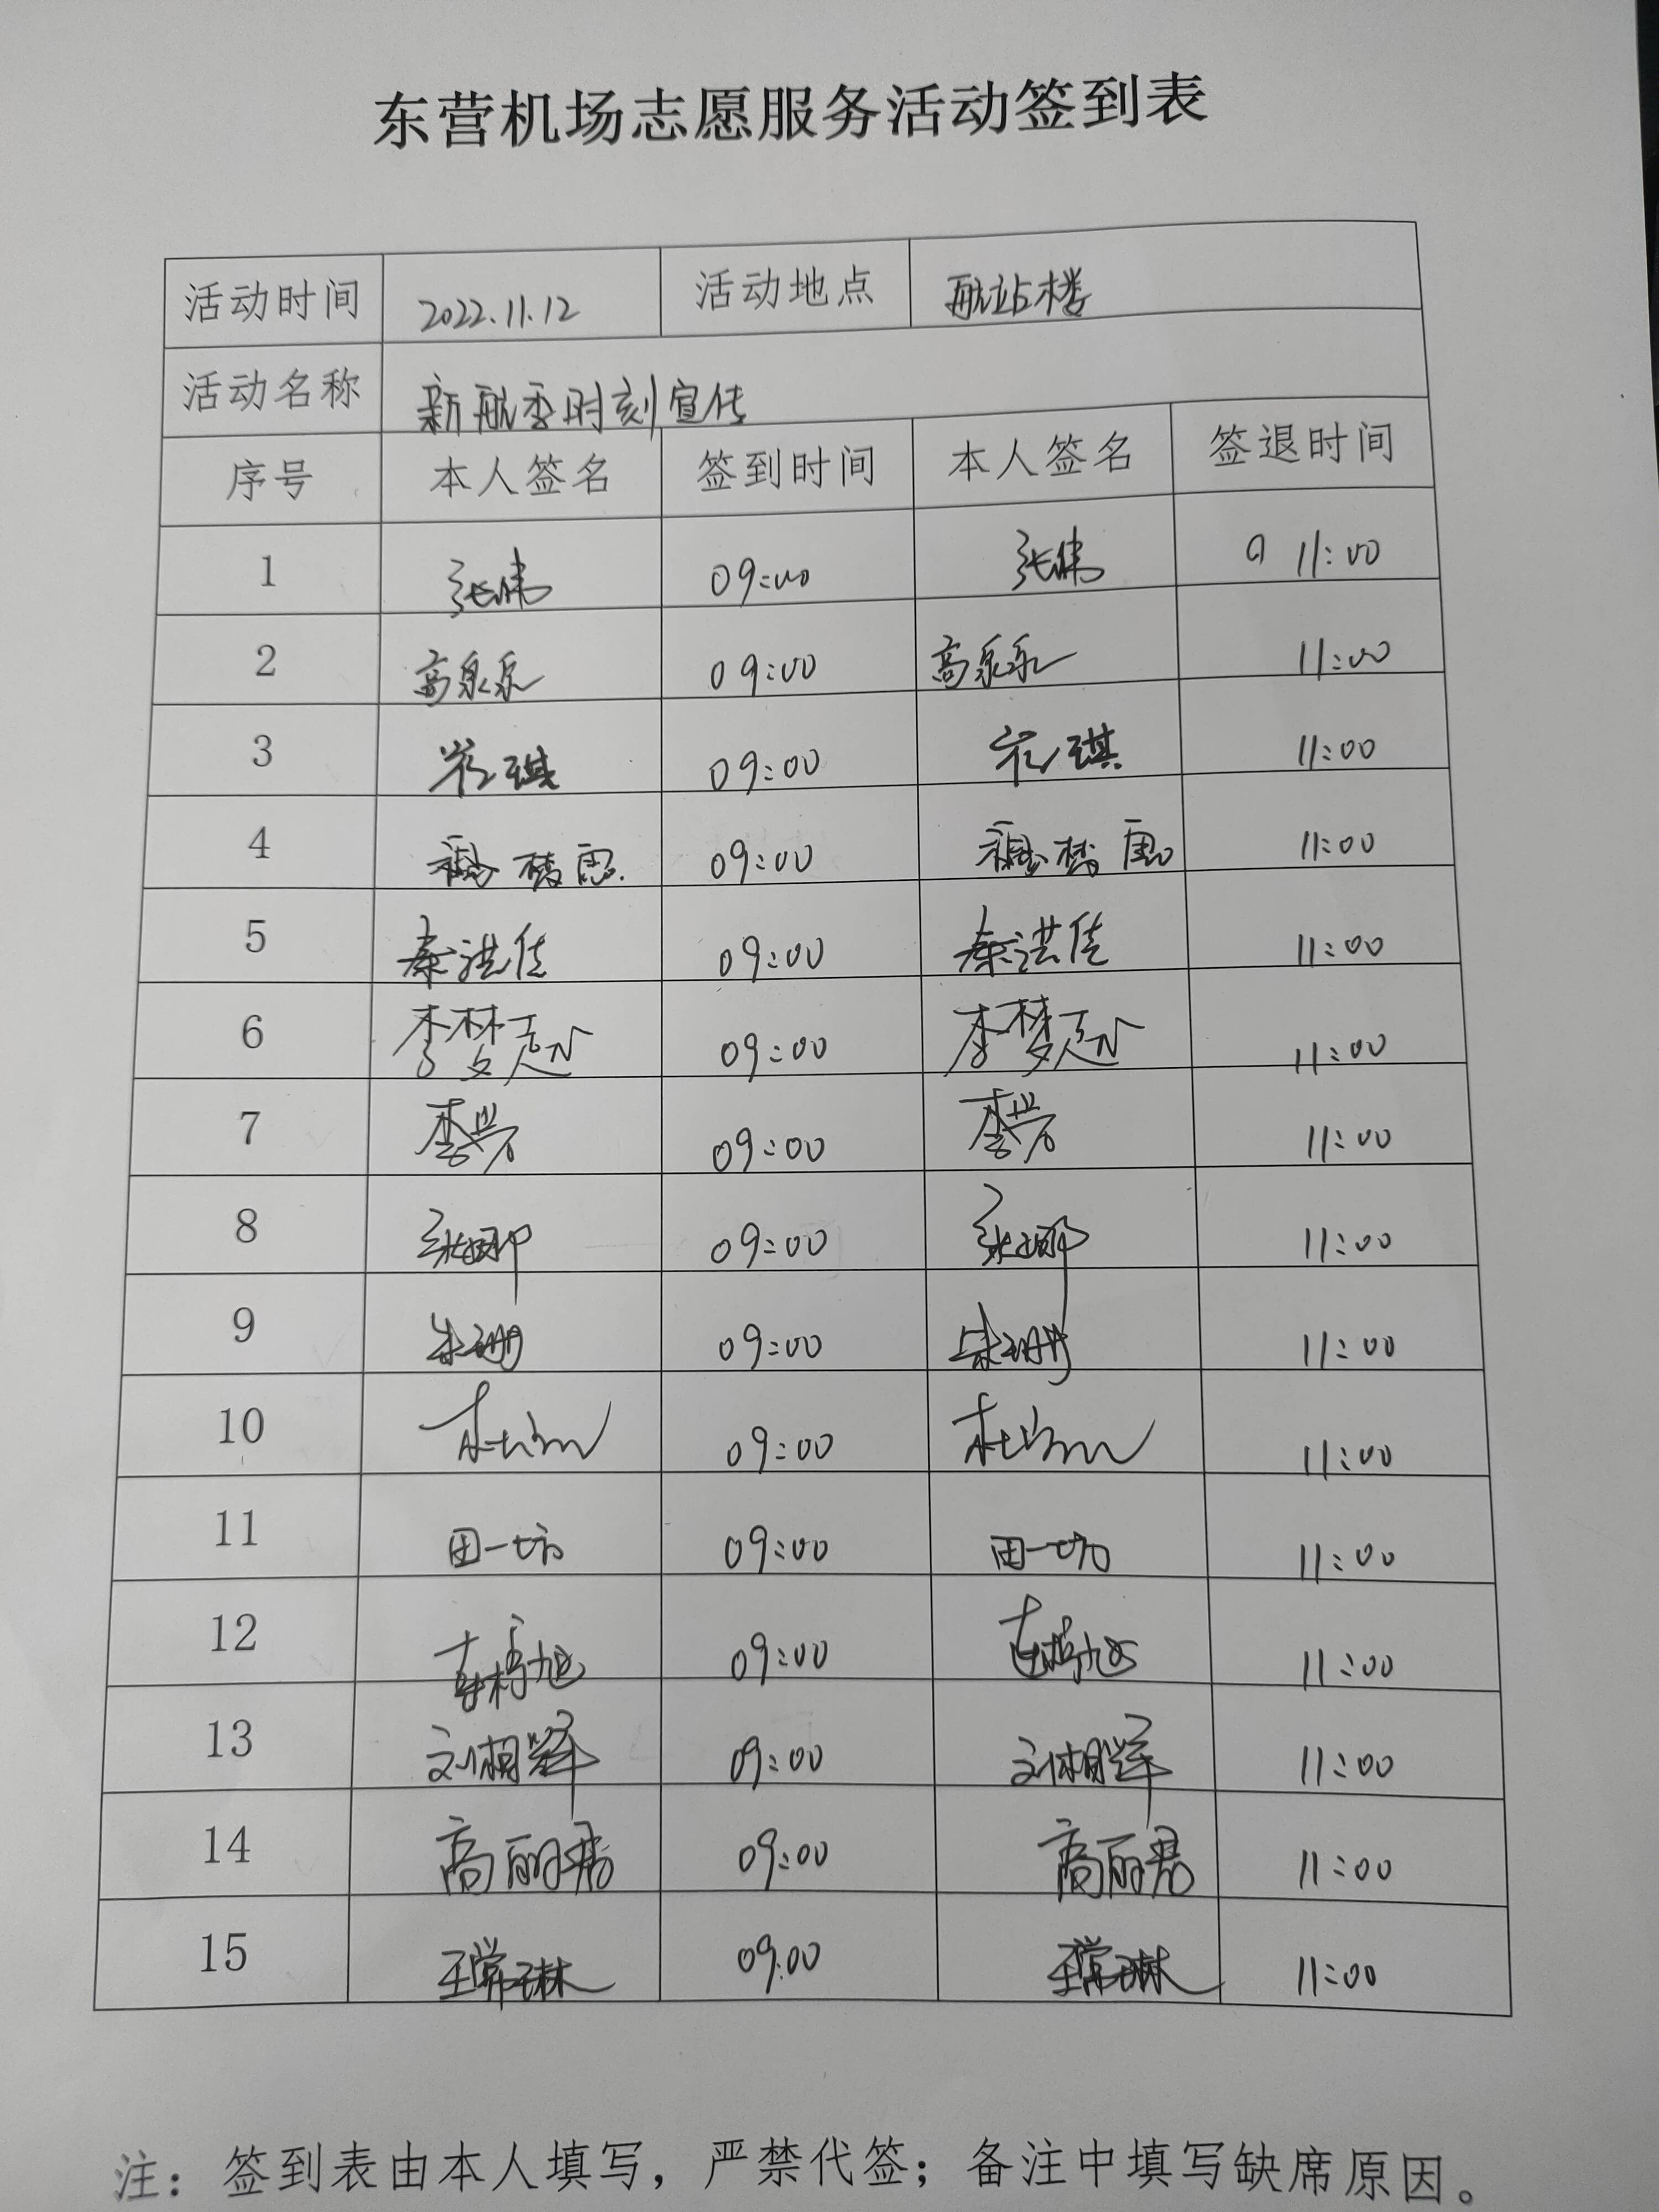 东营机场志愿服务活动签到表
活动时间 2022.11.12 活动地点 航站楼
活动名称 新航季时刻宣传
序号 本人签名 签到时间 本人签名 签退时间
1 张伟 09:00 张伟 11:00
2 高泉泉 09:00 高泉泉 11:00
3 09:00 11:00
4 09:00 11:00
5 秦洪佳 09:00 秦洪佳 11:00
6 09:00 11:00
7 李岩 09:00 李岩 11:00
8 张娜 09:00 张娜 11:00
9 朱珊 09:00 朱珊 11:00
10 09:00 11:00
11 09:00 11:00
12 09:00 11:00
13 09:00 11:00
14 高丽君 09:00 高丽君 11:00
15 09:00 11:00
注：签到表由本人填写，严禁代签；备注中填写缺席原因。